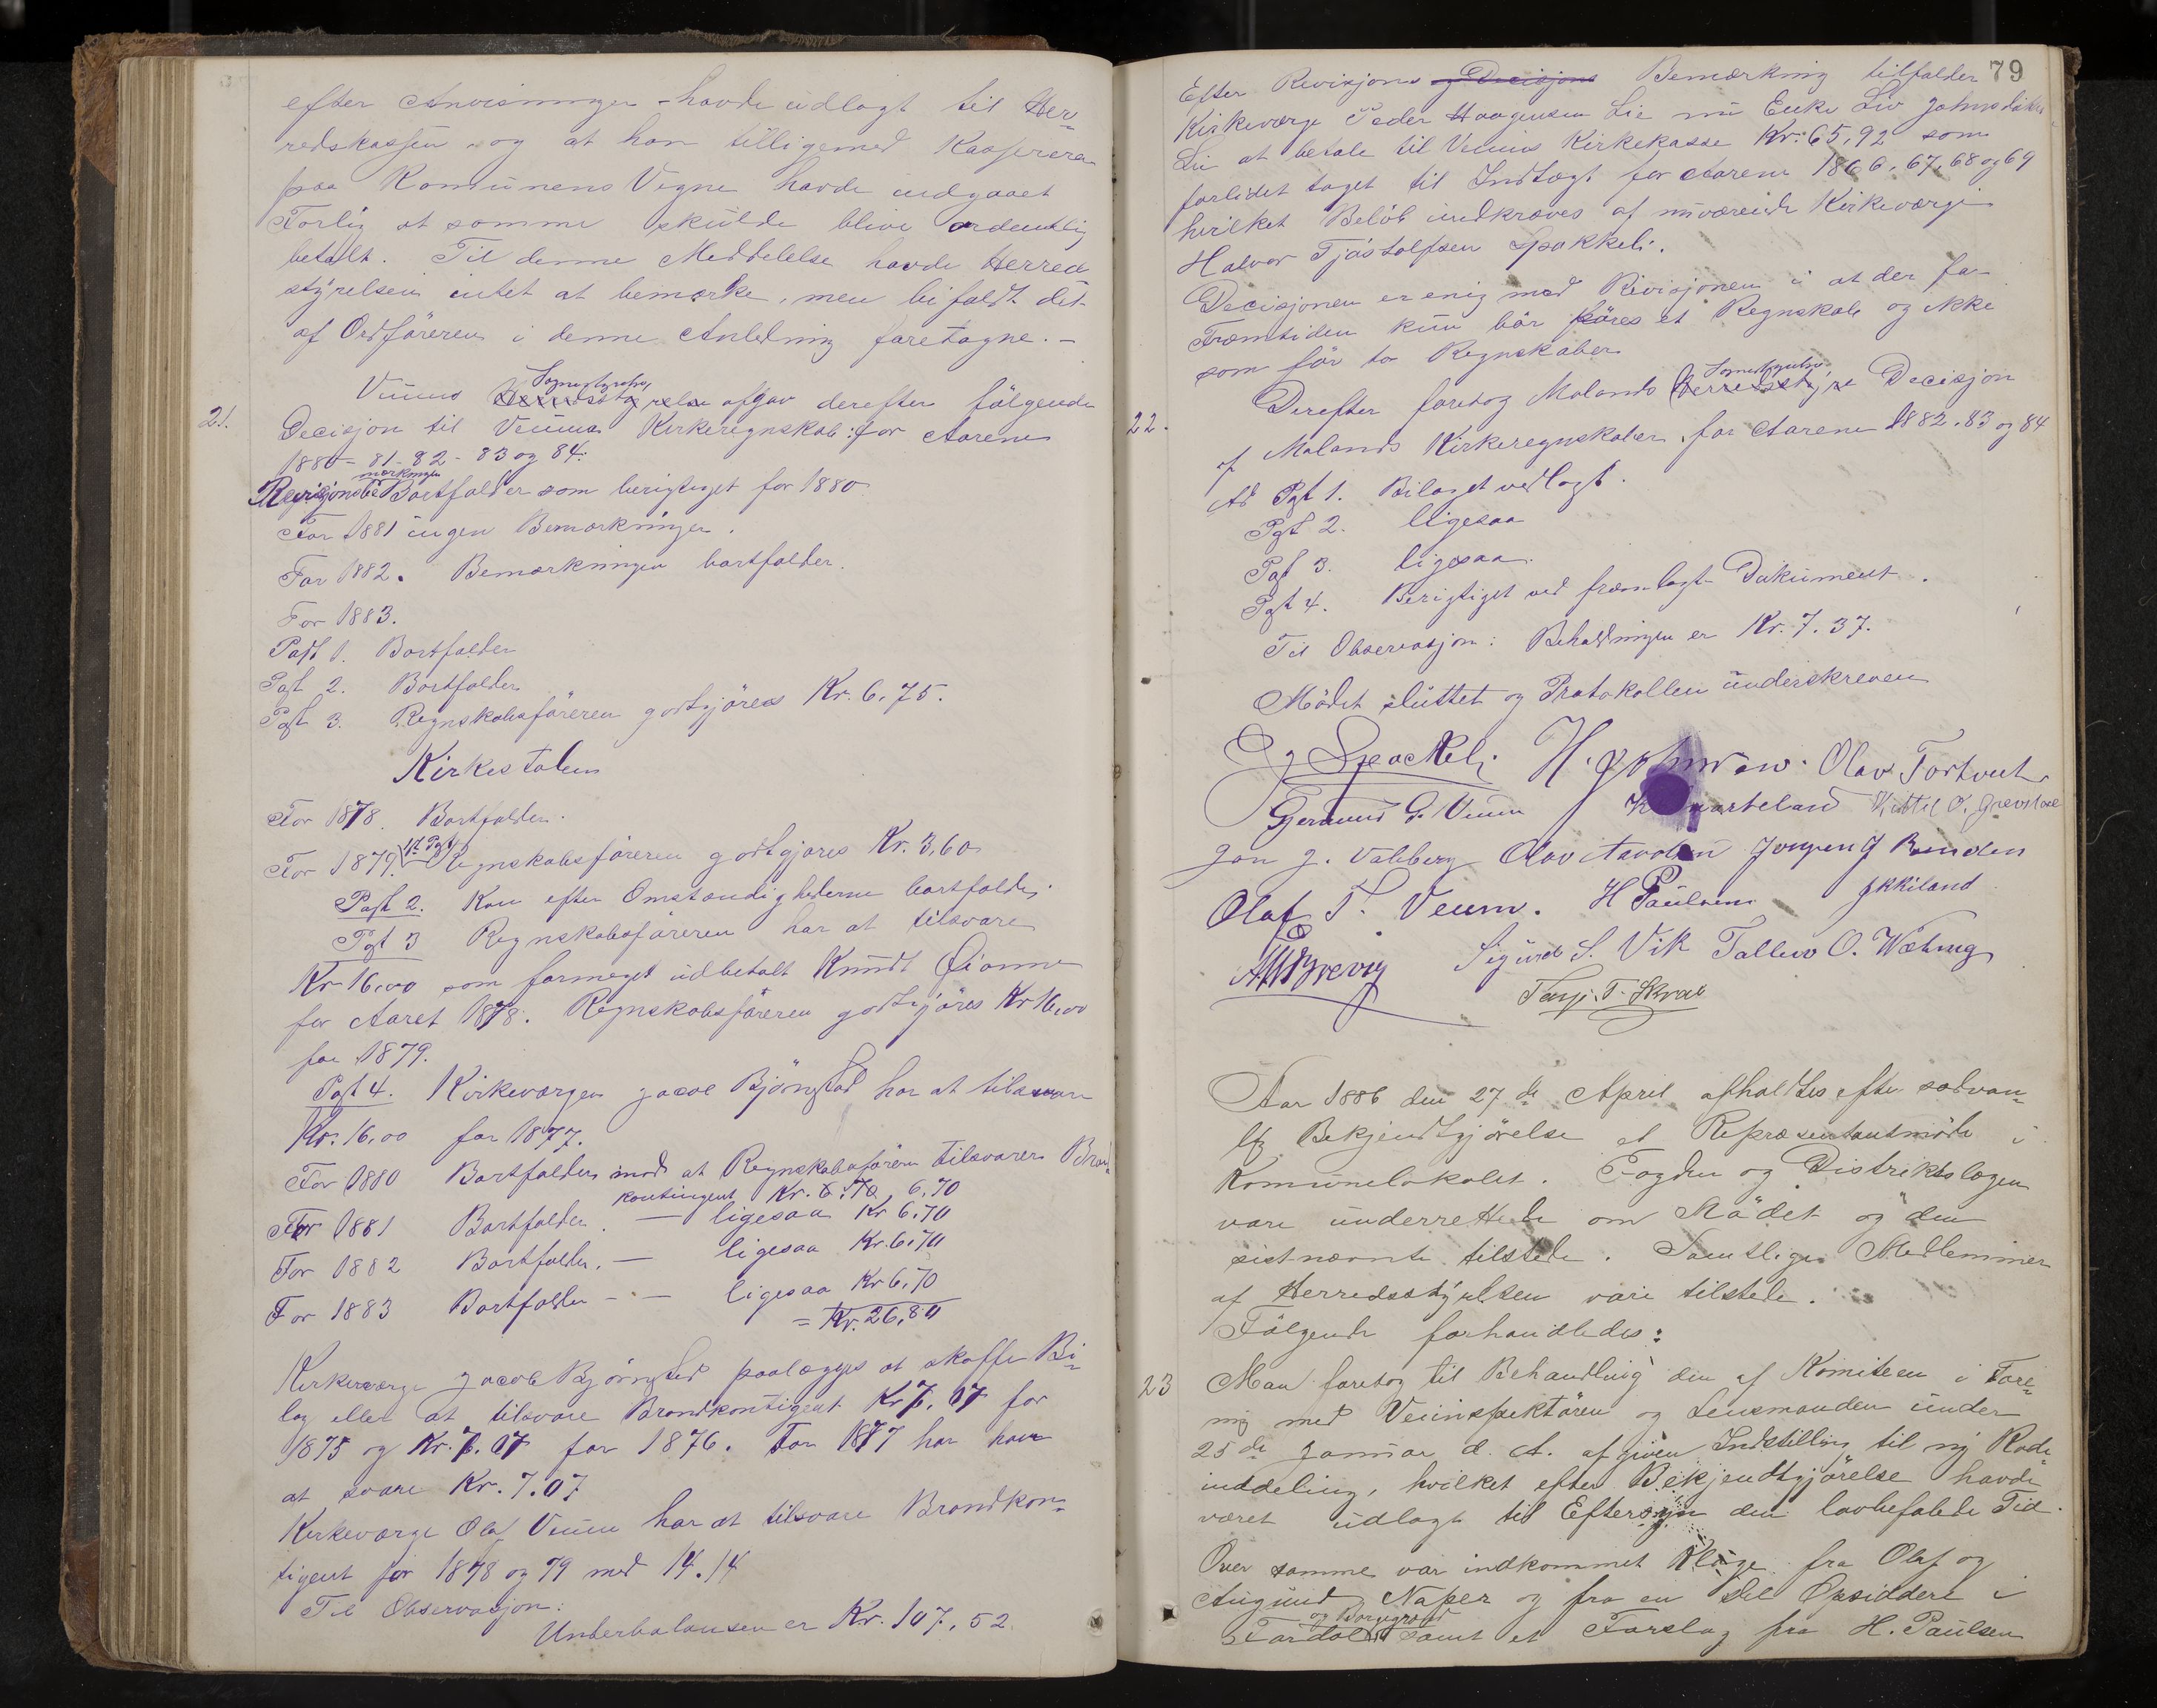 efter Anvisninger havde udlagt til Her-
redskassen og at han tilligemed Kassereren
paa Komunens Vegne havde indgaaet
Forlig at somme skulde blive ordentlig
betalt. Til denne Meddelelse havde Herreds
styrelsen intet at bemærke, men bifaldt det
af Ordföreren i denne Anledning foretagne. -
Sognestyrelse
Veums afgav derefter fölgende
21. Decisjon til Veums Kirkeregnskab for Aarene
1880 - 81 - 82 - 83 og 84:
mærkningen
Revisjonsbe Bortfalder som berigtiget for 1880
For 1881 ingen Bemærkninger.
For 1882. Bemærkningen bortfalder.
For 1883.
Post 1. Bortfalder
Post 2. Bortfalder
Post 3. Regnskabsföreren godtgjöres Kr. 6,75.
Kirkestolen
For 1878. Bortfalder.
For 1879. 1st Pst Regnskabsföreren godtgjøres Kr. 3,60
Post 2. Kan efter Omstændighederne bortfalde.
Pst 3 Regnskabsföreren har at tilsvare
Kr 16,00 som formeget udbetalt Knudt
for Aaret 1878. Regnskabsföreren godtgjöres Kr 16,00
for 1879.
Post 4. Kirkeværgen Jacob Björnstad har at tilsvare
Kr. 16,00 for 1877.
For 1880 Bortfalder mod at Regnskabsföreren tilsvarer Brand-
kontingent Kr. 6.70, 6,70
For 1881 Bortfalder. — ligesaa Kr 6,70
For 1882 Bortfalder. — ligesaa Kr. 6,70
For 1883 Bortfalder - — ligesaa Kr 6,70
= Kr. 26,80
Kirkeværge Jacob Björnstad paalægges at skaffe Bi-
lag eller at tilsvare Brandkontigent Kr 7,07 for
1875 og Kr. 7,07 for 1876. For 1877 har han
at svare Kr. 7.07
Kirkeværge Olaf Veum har at tilsvare Brandkon-
tigent for 1878 og 79 med 14.14
Til Observasjon:
Underbalansen er Kr. 107,52
79
Efter Revisjons og Decisjons Bemærkning tilfalder
Kirkeværge Peder Haagensen Lie nu Enke Liv Johnsdatter
Lie at betale til Veums Kirkekasse Kr: 65,92 som
forlidet taget til Indtægt for Aarene 1866, 67, 68 og 69
hvilket Belöb indkræves af nuværende Kirkeværge
Halvor Tjöstolfsen Spokkeli.
Decisjonen er enig med Revisjonen i at der for
Fremtiden kun bör föres et Regnskab og ikke
som för to Regnskaber
Sognestyrelse
22. Derefter foretog Molands Herredsstyre Decisjon
af Molands Kirkeregnskaber for Aarene 1882, 83 og 84
Ad Pst 1. Bilaget vedlagt.
Pst 2. ligesaa
Pst 3. ligesaa.
Pst 4. Berigtiget ved fremlagt Dokument.
Til Observasjon: Beholdningen er Kr. 7.37.
Mödet sluttet og Protokollen underskreven
Spockeli H. Johnsen Olav Fortveit
Gjermund G. Veum Kvarteland Kittil O. Grevstoel
Jon J. Valberg Olav Jörgen J
Olaf T. Veum. H Paulsen
Sigurd S. Vik Tallev O. Wæting
Terje T. Skree
Aar 1886 den 27de April afholdtes efter sædvan-
lig Bekjendtgjörelse et Repræsentantmöde i
Komunelokalet. Fogden og Distriktslægen
vare underrettede om Mödet og den
sistnævnte tilstede. Samtlige Medlemmer
af Herredsstyrelsen vare tilstede.
Fölgende forhandledes:
23 Man foretog til Behandling den af Komiteen i Fore-
ning med Veiinspektören og Lensmanden under
25de Januar d. A. afgiven Indstilling til ny Rode-
inddeling, hvilket efter Bekjendtgjörelse havde
været udlagt til Eftersyn den lovbefalede Tid.
Over samme var indkommet Klage fra Olaf og
Augund Naper og fra en Del Opsiddere i
og Borgegrænd
Fardal samt et Forslag fra H. Paulsen